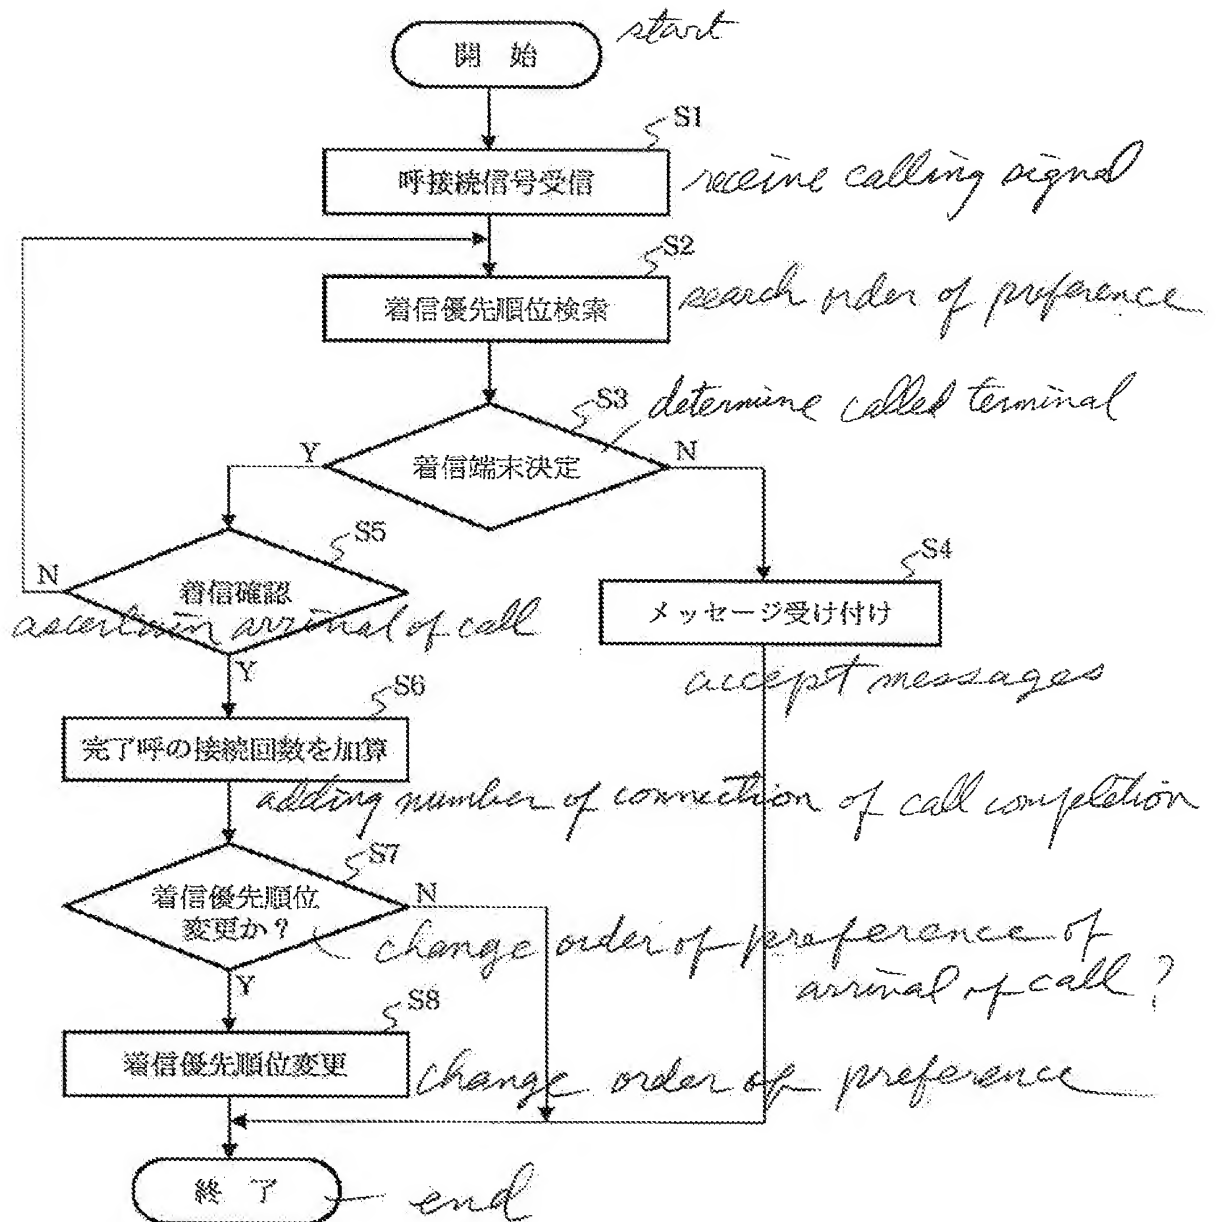 開 始
start
S1
呼接続信号受信
receive calling signal
S2
着信優先順位検索
search order of preference
S3
determine called terminal
Y
着信端末決定
N
S5
N
着信確認
ascertain arrival of call
Y
S4
メッセージ受け付け
accept messages
S6
完了呼の接続回数を加算
adding number of connection of call completion
S7
着信優先順位
変更か?
N
change order of preference of
arrival of call?
Y
S8
着信優先順位変更
change order of preference
終 了
end